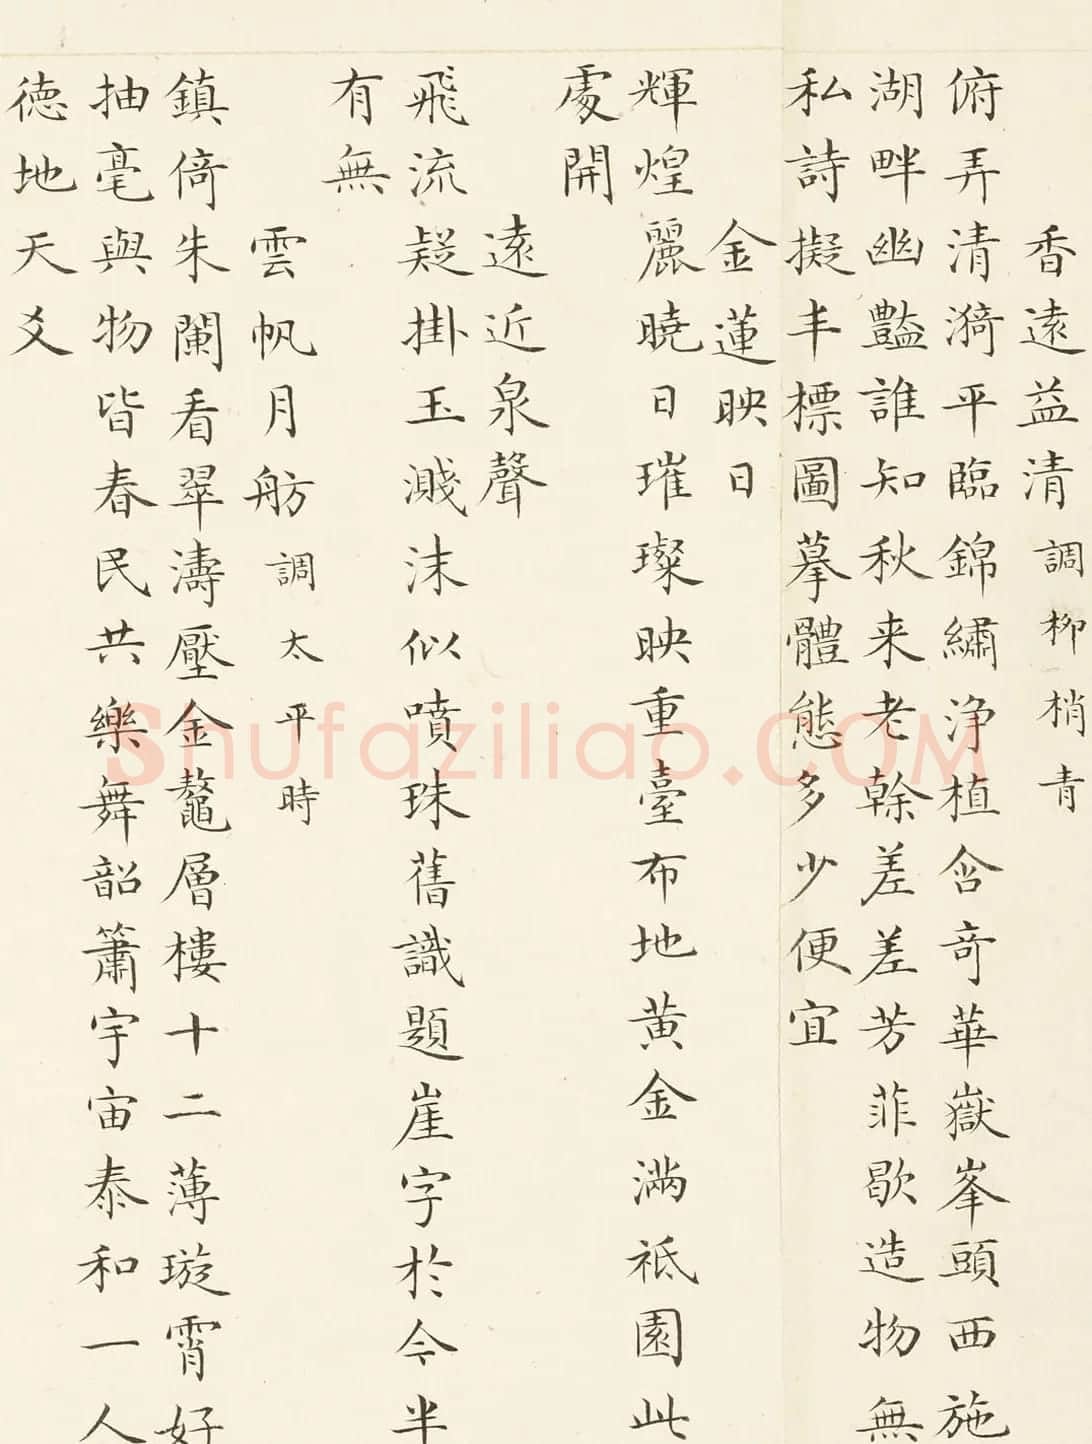 香遠益清調柳梢青
俯弄清漪平臨錦繡浄植含竒華嶽峯頭西施
湖畔幽豔誰知秋来老榦差差芳菲歇造物無
私詩擬丰標圖摹體態多少便宜
金蓮映日
輝煌麗曉日璀璨映重臺布地黄金滿祗園此
處開
遠近泉聲
飛流疑掛玉濺沫似噴珠舊識題崖字於今半
有無
雲帆月舫調太平時
鎮倚朱闌看翠濤壓金鼇層樓十二薄璇霄好
抽毫與物皆春民共樂舞韶簫宇宙泰和一人
德地天爻
Shufaziliao.COM